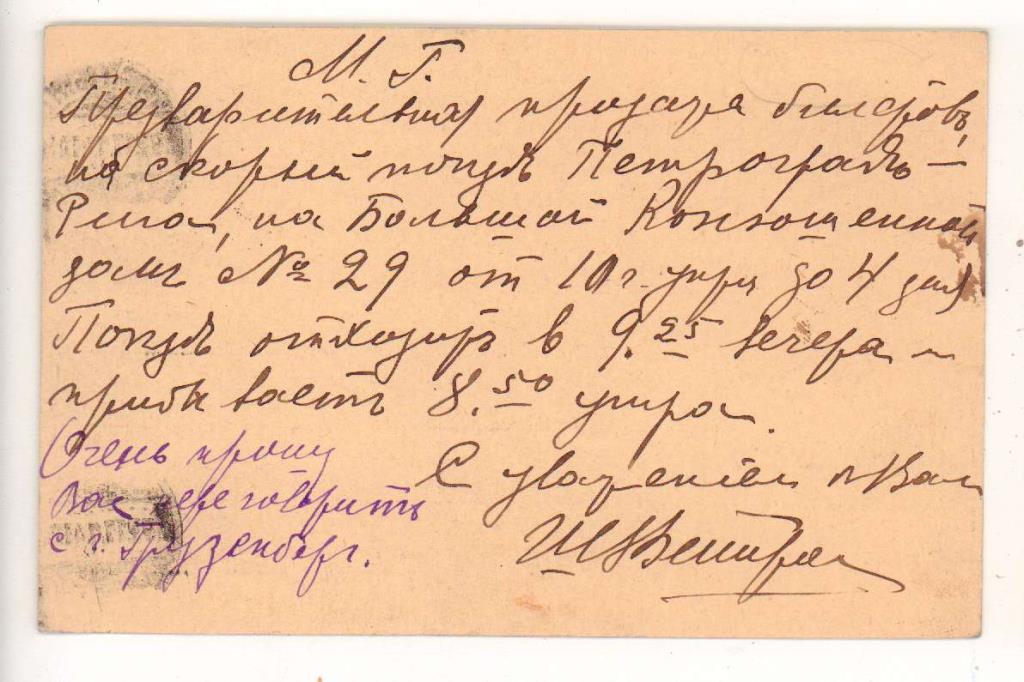 М. Г.
Предварительная продажа билетовъ
на скорый поѣздъ Петроградъ —
Рига, на Большой Конюшенной
домъ № 29 от 10 г. утра до 4 дня
Поѣздъ отходитъ в 9.25 вечера и
прибываетъ 8.50 утра.
С уважением к Вам
Очень прошу
Вас переговорить
с г. Грузенберг.